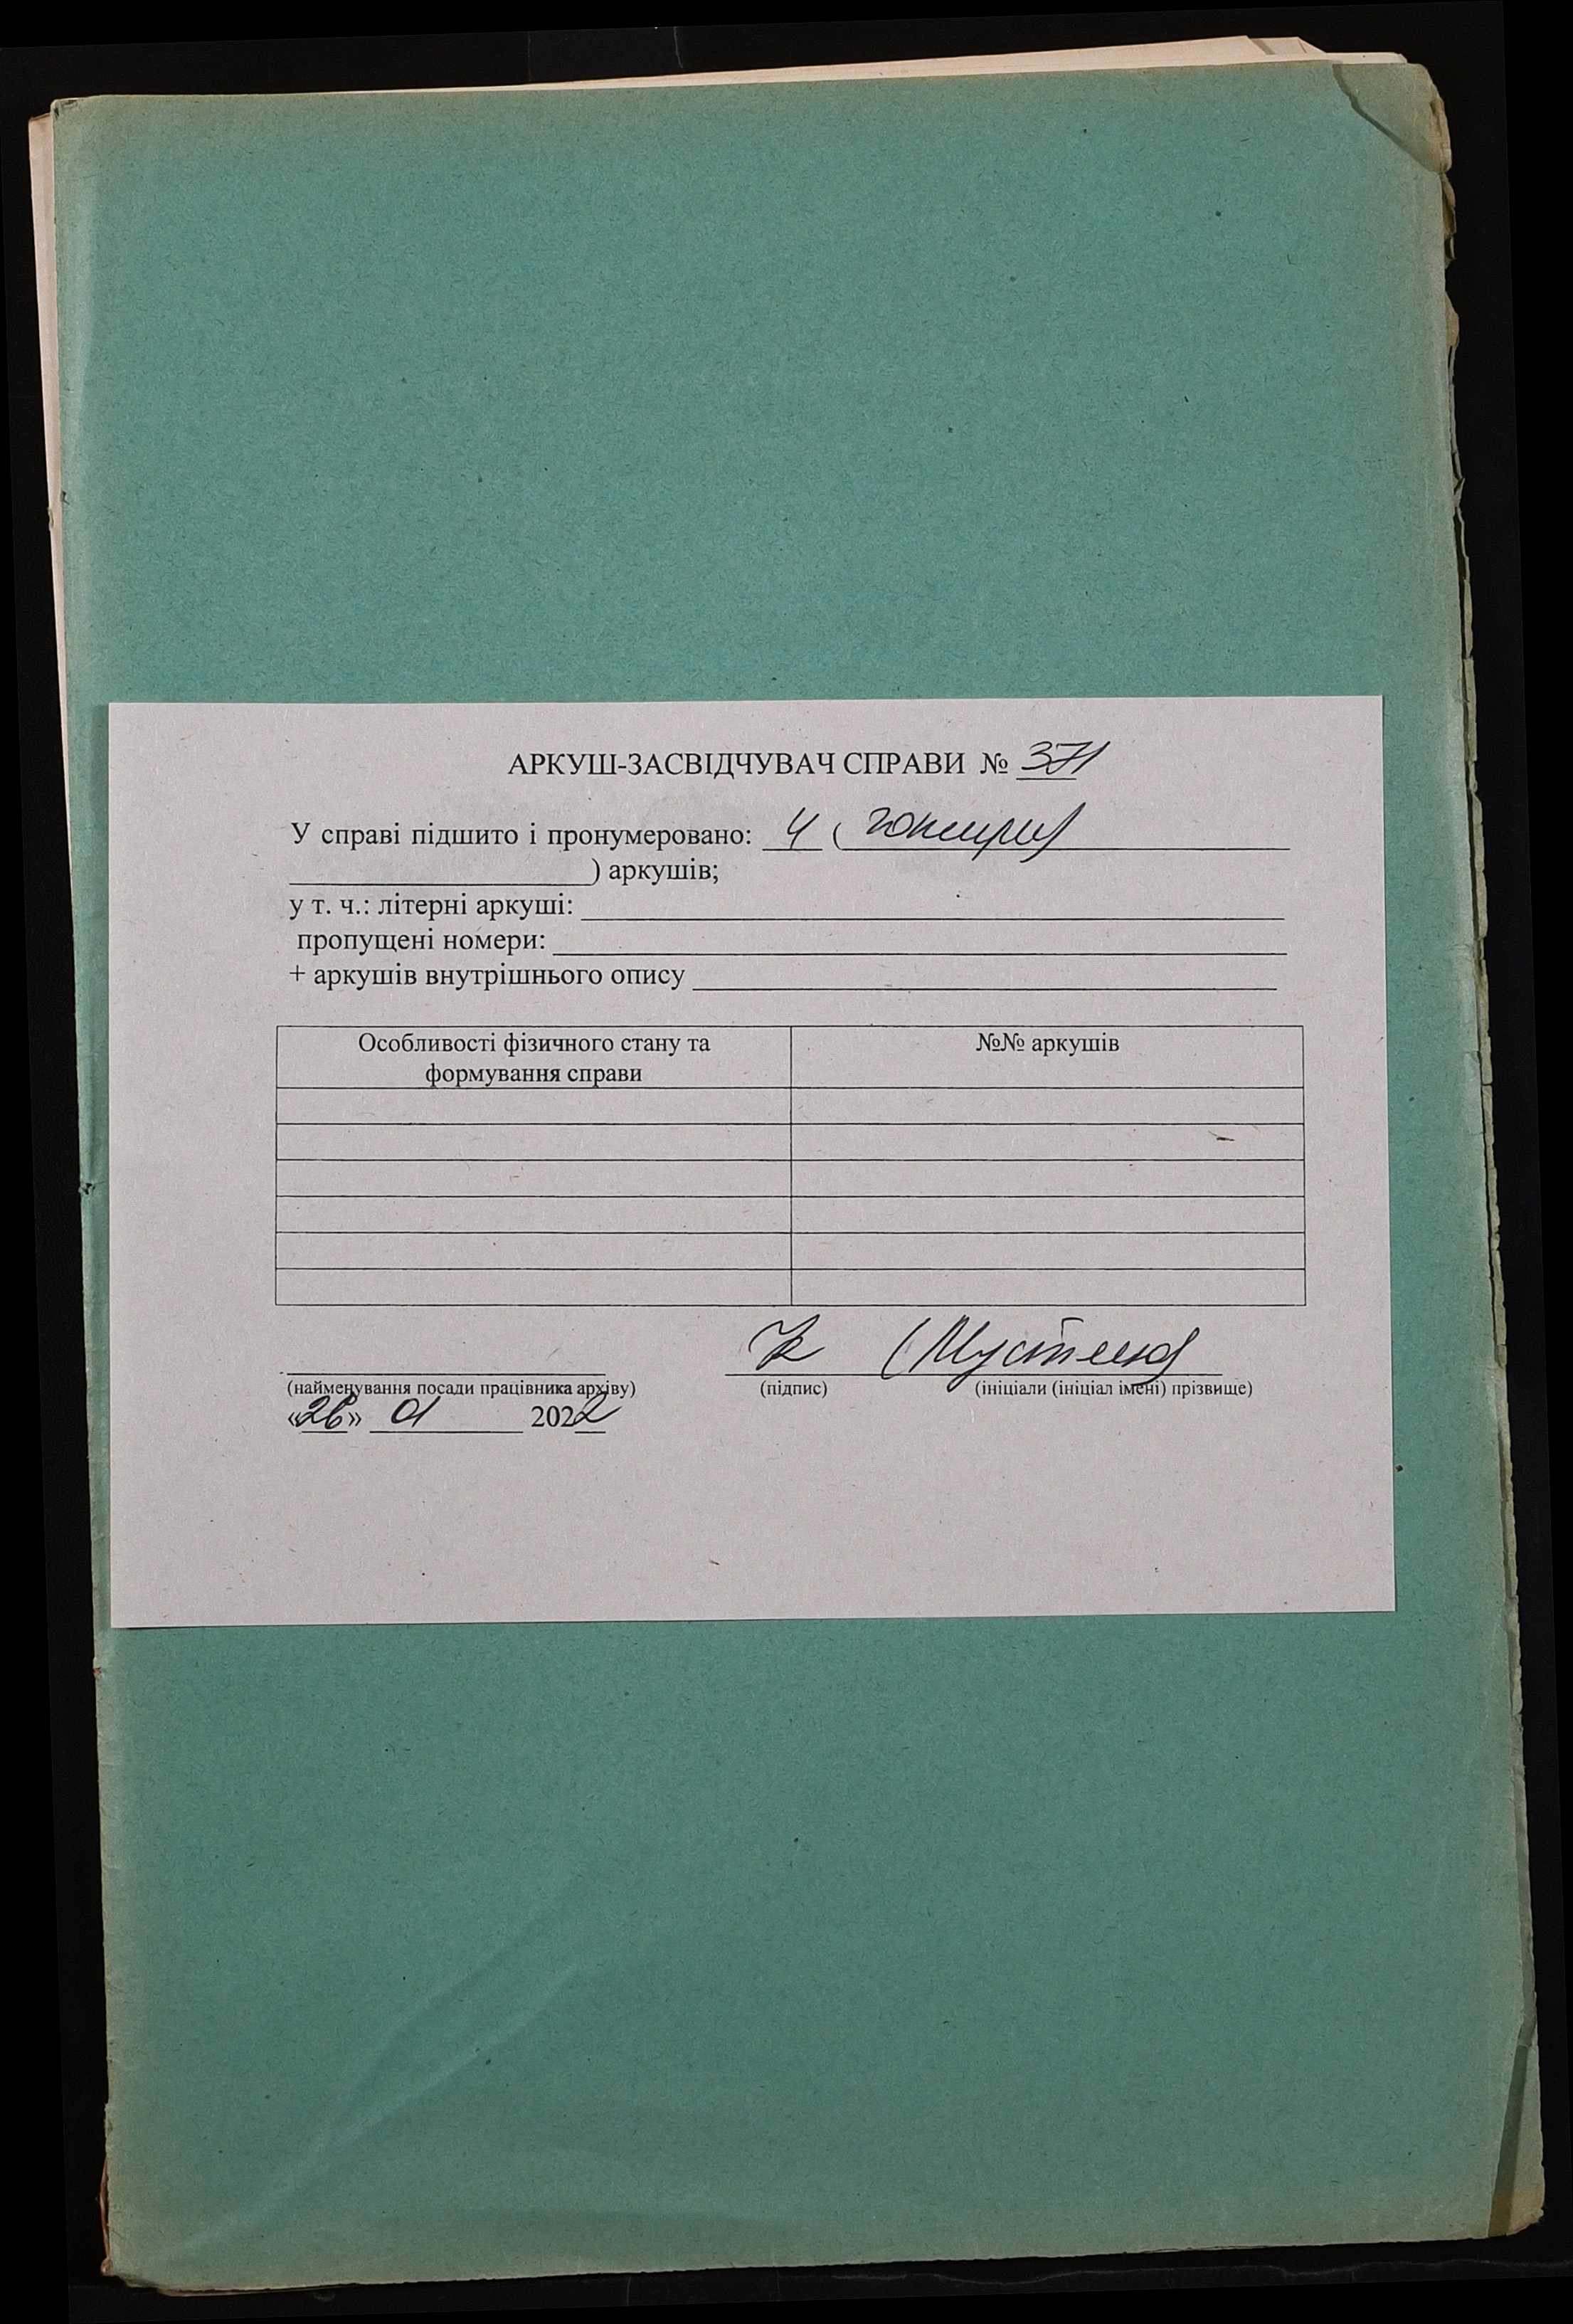 АРКУШ-ЗАСВІДЧУВАЧ СПРАВИ № 371
У справі підшито і пронумеровано: 4 (чотири
) аркушів;
у т. ч.: літерні аркуші:
пропущені номери:
+ аркушів внутрішнього опису
Особливості фізичного стану та формування справи
№№ аркушів
(найменування посади працівника архіву)
(підпис)
(ініціали (ініціал імені) прізвище)
«26» 01 2022